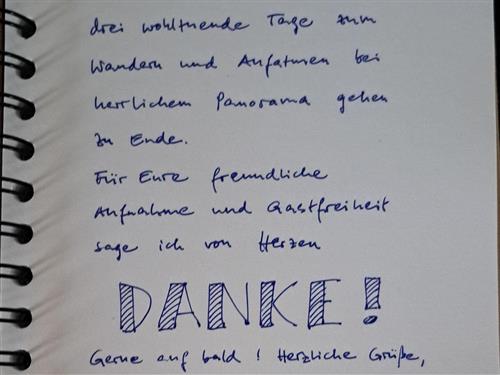 drei wohltuende Tage zum
Wandern und Aufatmen bei
herrlichem Panorama gehen
zu Ende.
Für Eure freundliche
Aufnahme und Gastfreiheit
sage ich von Herzen
DANKE!
Gerne auf bald! Herzliche Grüße,